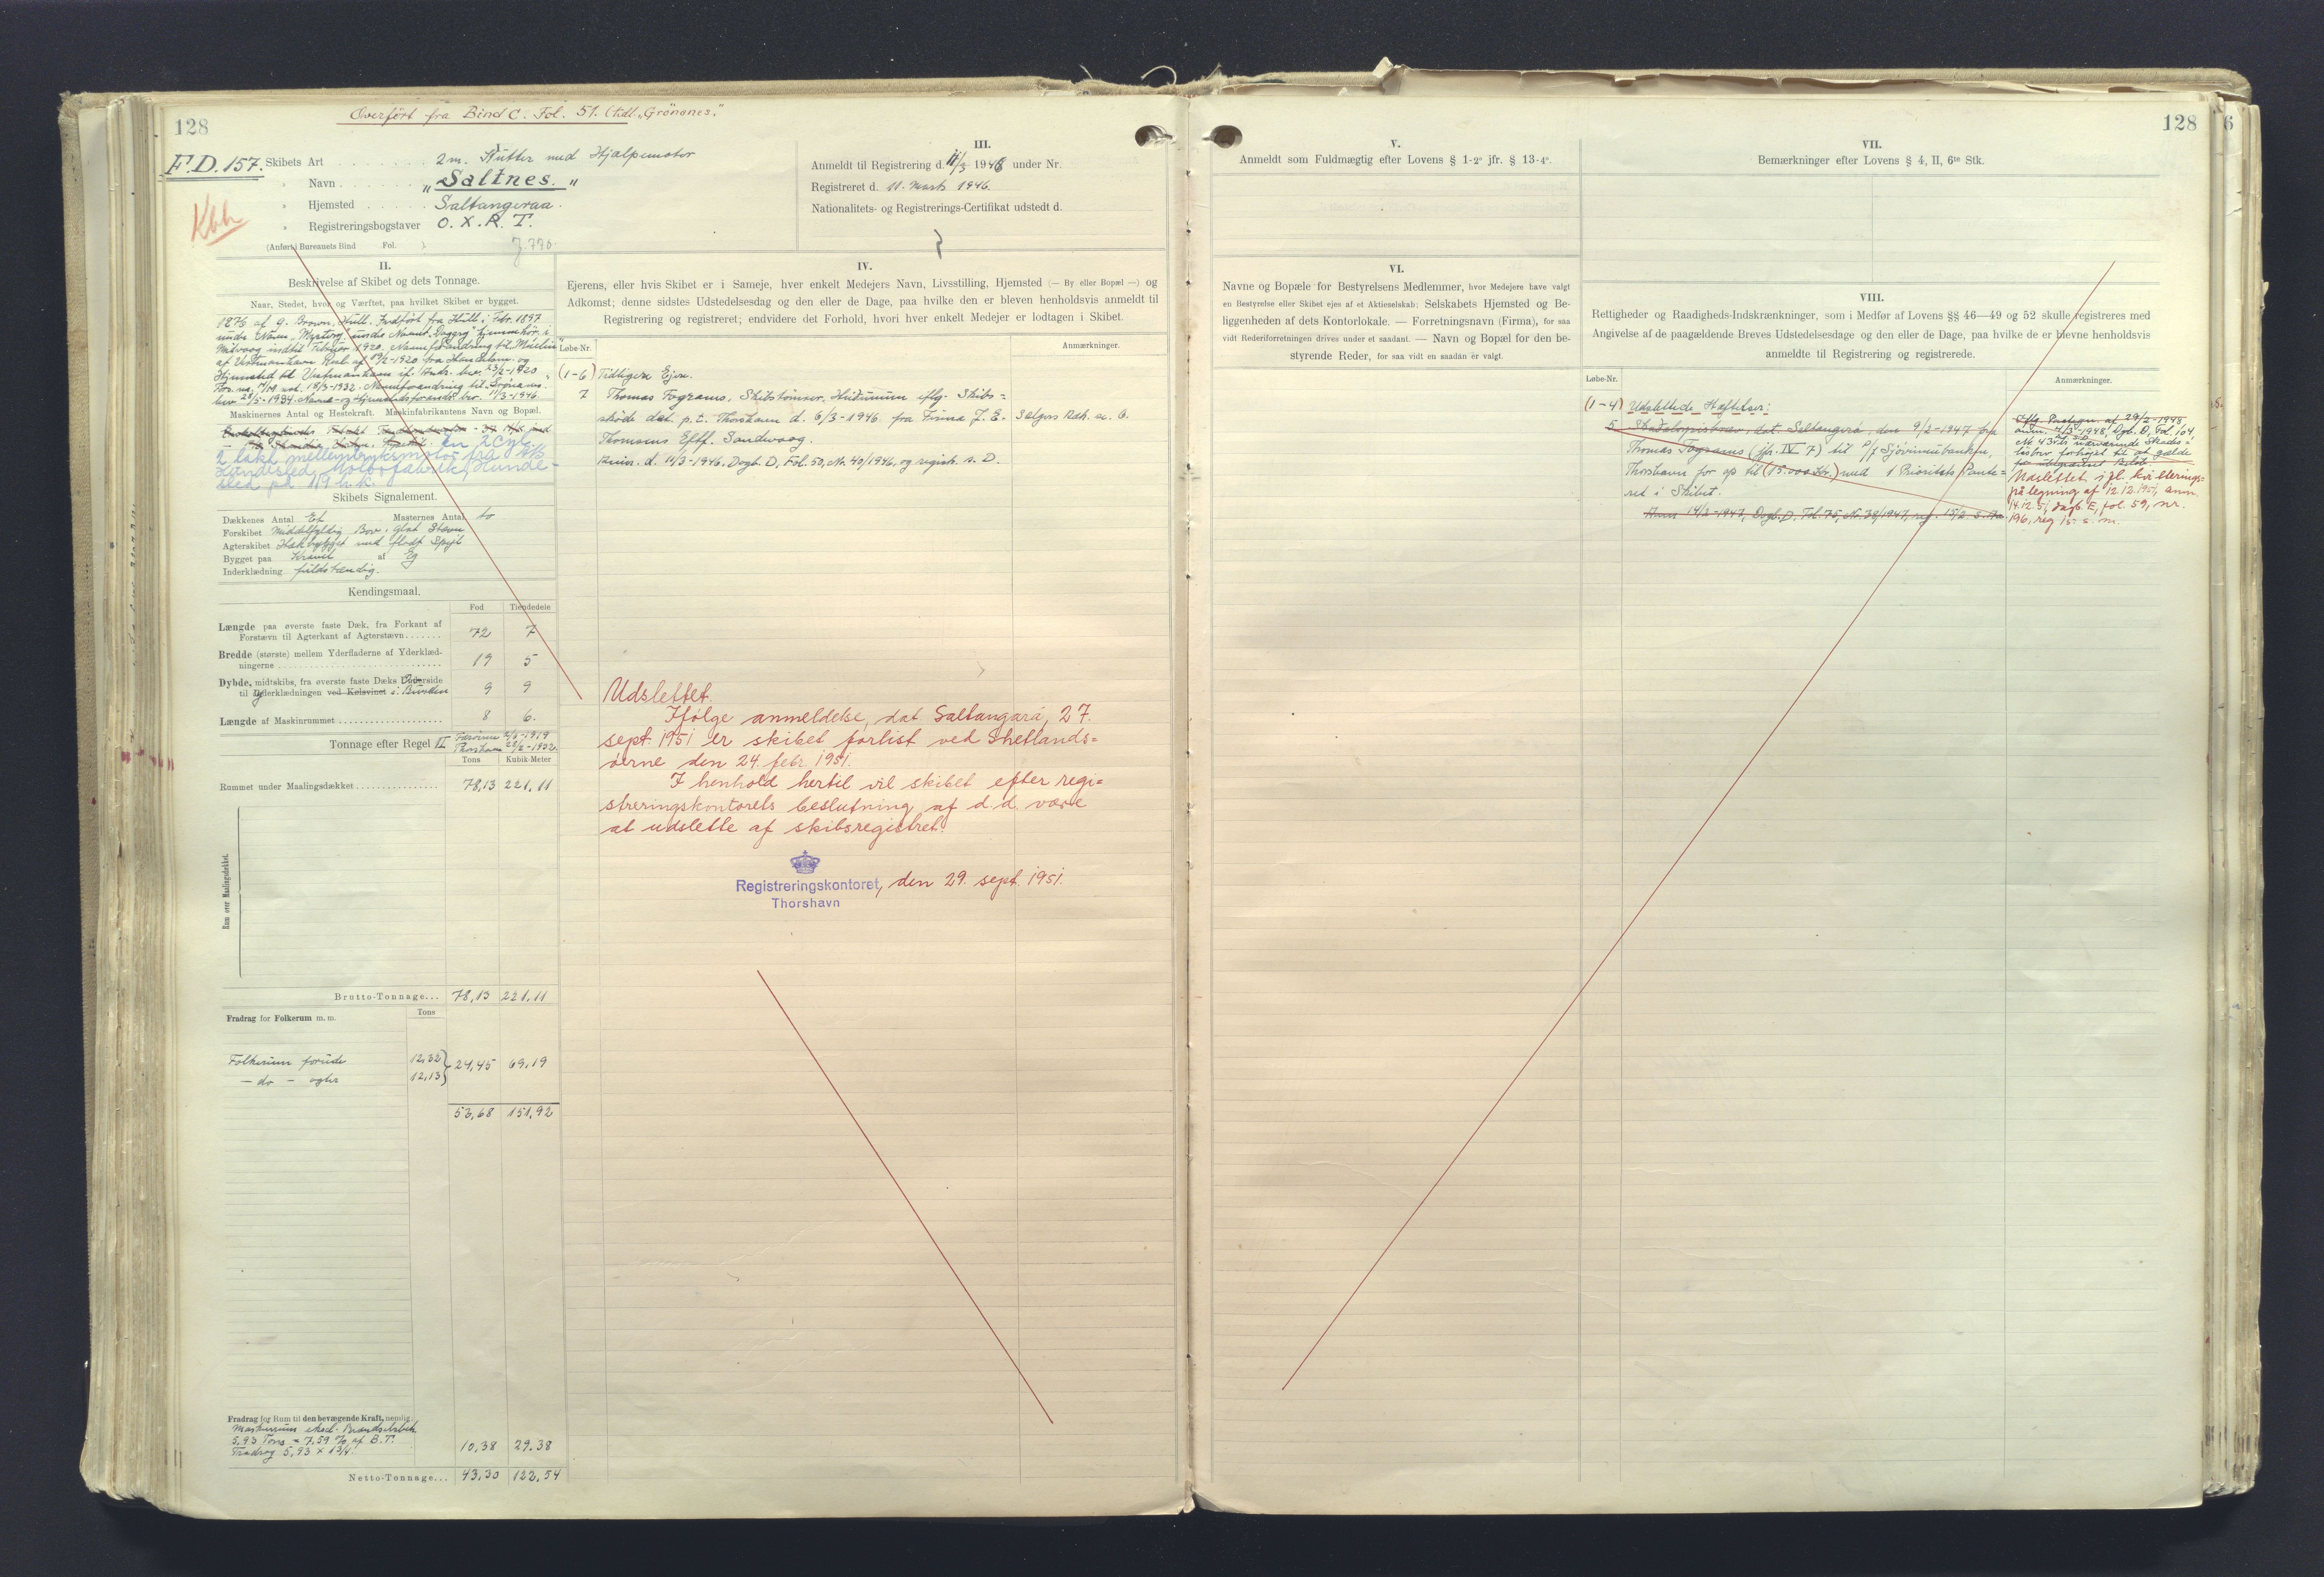 128
Overført fra Bind C. Fol. 51. (tidl. „Grönanes."
F.D. 157.
Kbh
Skibets Art 2m. Kutter med Hjælpemotor
„ Navn „Saltnes."
„ Hjemsted Saltangeraa.
„ Registreringsbogstaver O. X. R. T.
(Anført i Bureauets Bind Fol. )
III.
Anmeldt til Registrering d. 11/3 1946 under Nr.
Registreret d. 11. Marts 1946.
Nationalitets- og Registrerings-Certifikat udstedt d.
II.
Beskrivelse af Skibet og dets Tonnage.
Naar, Stedet, hvor og Værftet, paa hvilket Skibet er bygget.
af G. Brown, Hull. Indført fra Hull i Febr. 1897
Maskinernes Antal og Hestekraft. Maskinfabrikantens Navn og Bopæl.
en 2 Cyl.
2 takt mellemtryksmotor fra A/S
Hundested Motorfabrik, Hunde-
sted på 119 h.k.
Skibets Signalement.
Dækkenes Antal Et Masternes Antal to
Forskibet Middelfyldig Bov, glat Stævn
Agterskibet Hækbygget med fladt Spejl
Bygget paa Kravel af Eg
Inderklædning fuldstændig.
Kendingsmaal.
Fod Tiendedele
Længde paa øverste faste Dæk, fra Forkant af
Forstævn til Agterkant af Agterstævn 72 7
Bredde (største) mellem Yderfladerne af Yderklæd-
ningerne 19 5
Dybde, midtskibs, fra øverste faste Dæks Overside
til Yderklædningen ved Kølsvinet i Bunden 9 9
Længde af Maskinrummet 8 6.
Tonnage efter Regel II
Tons Kubik-Meter
Rummet under Maalingsdækket 78,13 221,11
Rum over Maalingsdækket.
Brutto-Tonnage... 78,13 221,11
Fradrag for Folkerum m.m. Tons
Folkerum forude 12,32
— do — agter 12,13 } 24,45 69,19
53,68 151,92
Fradrag for Rum til den bevægende Kraft, nemlig:
5,93 Tons = 7,59 % af B.T.
Fradrag 5,93 × 13/4. 10,38 29.38
Netto-Tonnage... 43,30 122,54
IV.
Ejerens, eller hvis Skibet er i Sameje, hver enkelt Medejers Navn, Livsstilling, Hjemsted (— By eller Bopæl —) og
Adkomst; denne sidstes Udstedelsesdag og den eller de Dage, paa hvilke den er bleven henholdsvis anmeldt til
Registrering og registreret; endvidere det Forhold, hvori hver enkelt Medejer er lodtagen i Skibet.
Løbe-Nr. Anmærkninger.
(1-6) Tidligere Ejere.
7 Thomas Fograms, Skibstømrer, Husumum iflg. Skibs=
skøde dat. p.t. Thorshavn d. 6/3-1946 fra Firma J. E.
Thomsens Eftf. Sandvaag.
Anm. d. 11/3-1946, Dagb. D, Fol. 50, Nr. 40/1946, og registr. s. D.
Udslettet.
Ifølge anmeldelse, dat Saltangará, 27.
sept. 1951 er skibet forlist ved Shetlands=
øerne den 24. febr. 1951.
I henhold hertil vil skibet efter regi=
streringskontorets beslutning af d.d. være
at udslette af skibsregistret.
Registreringskontoret, den 29. sept. 1951.
Thorshavn
128
6
V.
Anmeldt som Fuldmægtig efter Lovens § 1-2° jfr. § 13-4°.
VI.
Navne og Bopæle for Bestyrelsens Medlemmer, hvor Medejere have valgt
en Bestyrelse eller Skibet ejes af et Aktieselskab; Selskabets Hjemsted og Be-
liggenheden af dets Kontorlokale. — Forretningsnavn (Firma), for saa
vidt Rederiforretningen drives under et saadant. — Navn og Bopæl for den be-
styrende Reder, for saa vidt en saadan er valgt.
VII.
Bemærkninger efter Lovens § 4, II, 6te Stk.
VIII.
Rettigheder og Raadigheds-Indskrænkninger, som i Medfør af Lovens §§ 46—49 og 52 skulle registreres med
Angivelse af de paagældende Breves Udstedelsesdage og den eller de Dage, paa hvilke de er blevne henholdsvis
anmeldte til Registrering og registrerede.
Løbe-Nr. Anmærkninger.
(1-4) Udslettede Hæftelser:
5 Skadesløsbrev, dat. Saltangerá, den 9/2-1947 fra
Thomas Fograms (jfr. IV 7) til P/f Sjóvinnubankin,
Thorshavn for op til (15.000 Kr.) med 1 Prioritets Pante=
ret i Skibet.
Anm 14/2-1947, Dagb. D, Fol. 75, Nr. 38/1947, reg. 15/2 s. Aa.
Iflg. Paategn. af 29/2-1948,
Udslettet ifl. kvitterings-
påtegning af 12.12.1951, anm.
14.12.51, dagb. E, fol. 59, nr.
196, reg. 15. s. m.